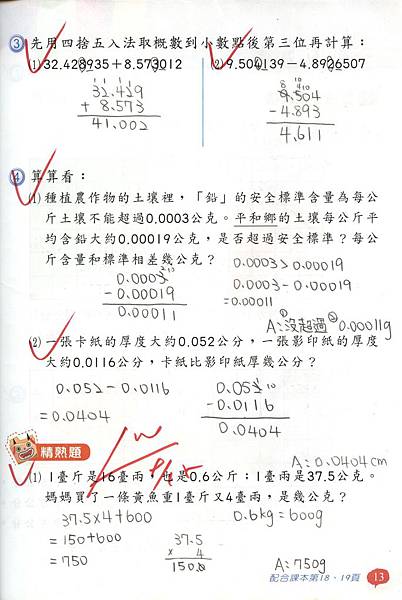 ③ 先用四捨五入法取概數到小數點後第三位再計算：
(1) 32.428935+8.573012 (2) 9.500139-4.8926507
32.429
+ 8.573
41.002
9.504
- 4.893
4.611
④ 算算看：
(1) 種植農作物的土壤裡，「鉛」的安全標準含量為每公
斤土壤不能超過0.0003公克。平和鄉的土壤每公斤平
均含鉛大約0.00019公克，是否超過安全標準？每公
斤含量和標準相差幾公克？
0.0003
- 0.00019
0.00011
0.0003>0.00019
0.0003-0.00019
=0.00011
A:①沒超過②0.00011g
(2) 一張卡紙的厚度大約0.052公分，一張影印紙的厚度
大約0.0116公分，卡紙比影印紙厚幾公分？
0.052-0.0116
=0.0404
0.052
- 0.0116
0.0404
A:0.0404cm
精熟題
(1) 1臺斤是16臺兩，也是0.6公斤；1臺兩是37.5公克。
媽媽買了一條黃魚重1臺斤又4臺兩，是幾公克？
37.5×4+600
=150+600
=750
37.5
× 4
150.0
0.6kg=600g
A:750g
配合課本第18、19頁 13